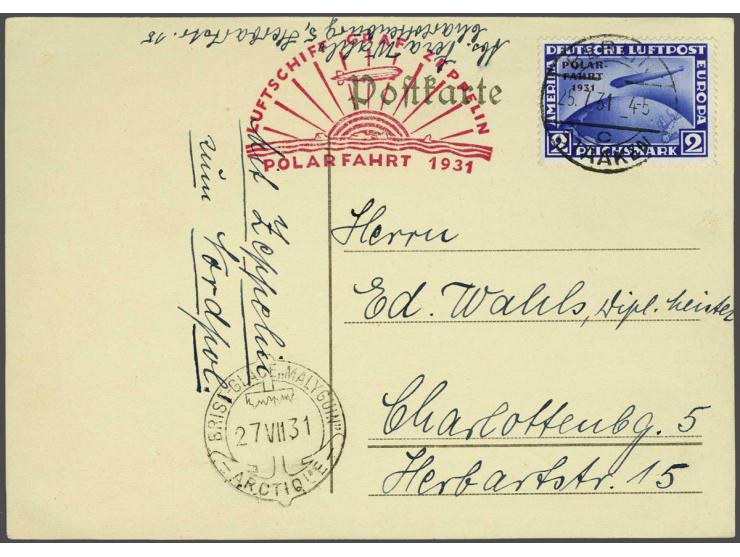 Abs. Vera Wahls
Charlottenburg 5, Herbartstr. 15
LUFTSCHIFF GRAF ZEPPELIN
POLARFAHRT 1931
Postkarte
DEUTSCHE LUFTPOST
AMERIKA
EUROPA
POLAR-
FAHRT
1931
2 REICHSMARK 2
25.7.31 4-5
C
SPAAKEN
Mit Zeppelin
zum Nordpol.
Herrn
Ed. Wahls, Dipl.
Charlottenbg. 5
Herbartstr. 15
BRISE GLACE „MALYGUIN"
27 VII 31
ARCTIQUE